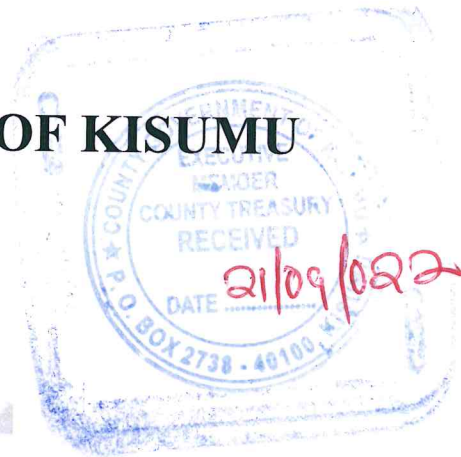 OF KISUMU
COUNTY GOVERNMENT OF
EXECUTIVE
MEMBER
COUNTY TREASURY
RECEIVED
DATE 21/09/022
P.O. BOX 2738 - 40100